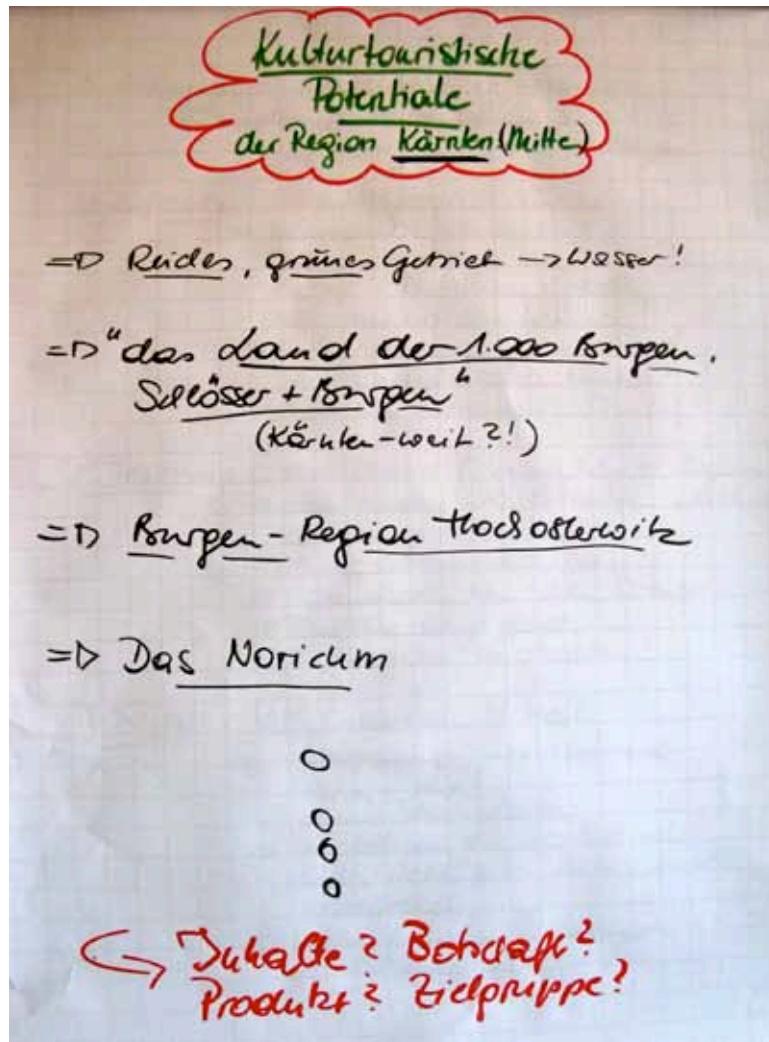 Kulturtouristische
Potentiale
der Region Kärnten (Mitte)
=> Reiches, grünes Gebiet -> Wasser!
=> "das Land der 1.000 Burgen,
Schlösser + Burgen"
(Kärnten-weit?!)
=> Burgen-Region Hochosterwitz
=> Das Noricum
Inhalte? Botschaft?
Produkt? Zielgruppe?